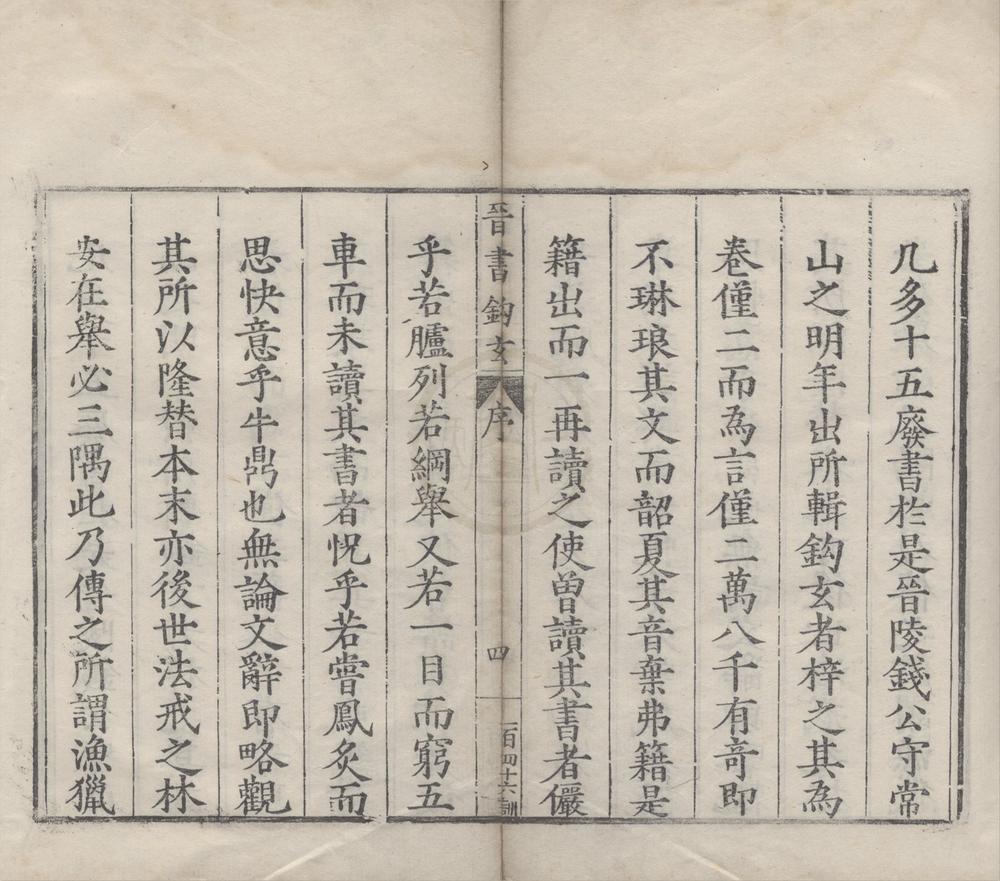 几多十五廢書於是晉陵錢公守常
山之明年出所輯鈎玄者梓之其為
卷僅二而為言僅二萬八千有奇即
不琳琅其文而韶夏其音棄弗籍是
籍出而一再讀之使曾讀其書者儼
晉書鈎玄 序 四 一百四十六訓
乎若臚列若綱舉又若一目而窮五
車而未讀其書者怳乎若嘗鳳炙而
思快意乎牛鼎也無論文辭即略觀
其所以隆替本末亦後世法戒之林
安在舉必三隅此乃傳之所謂漁獵